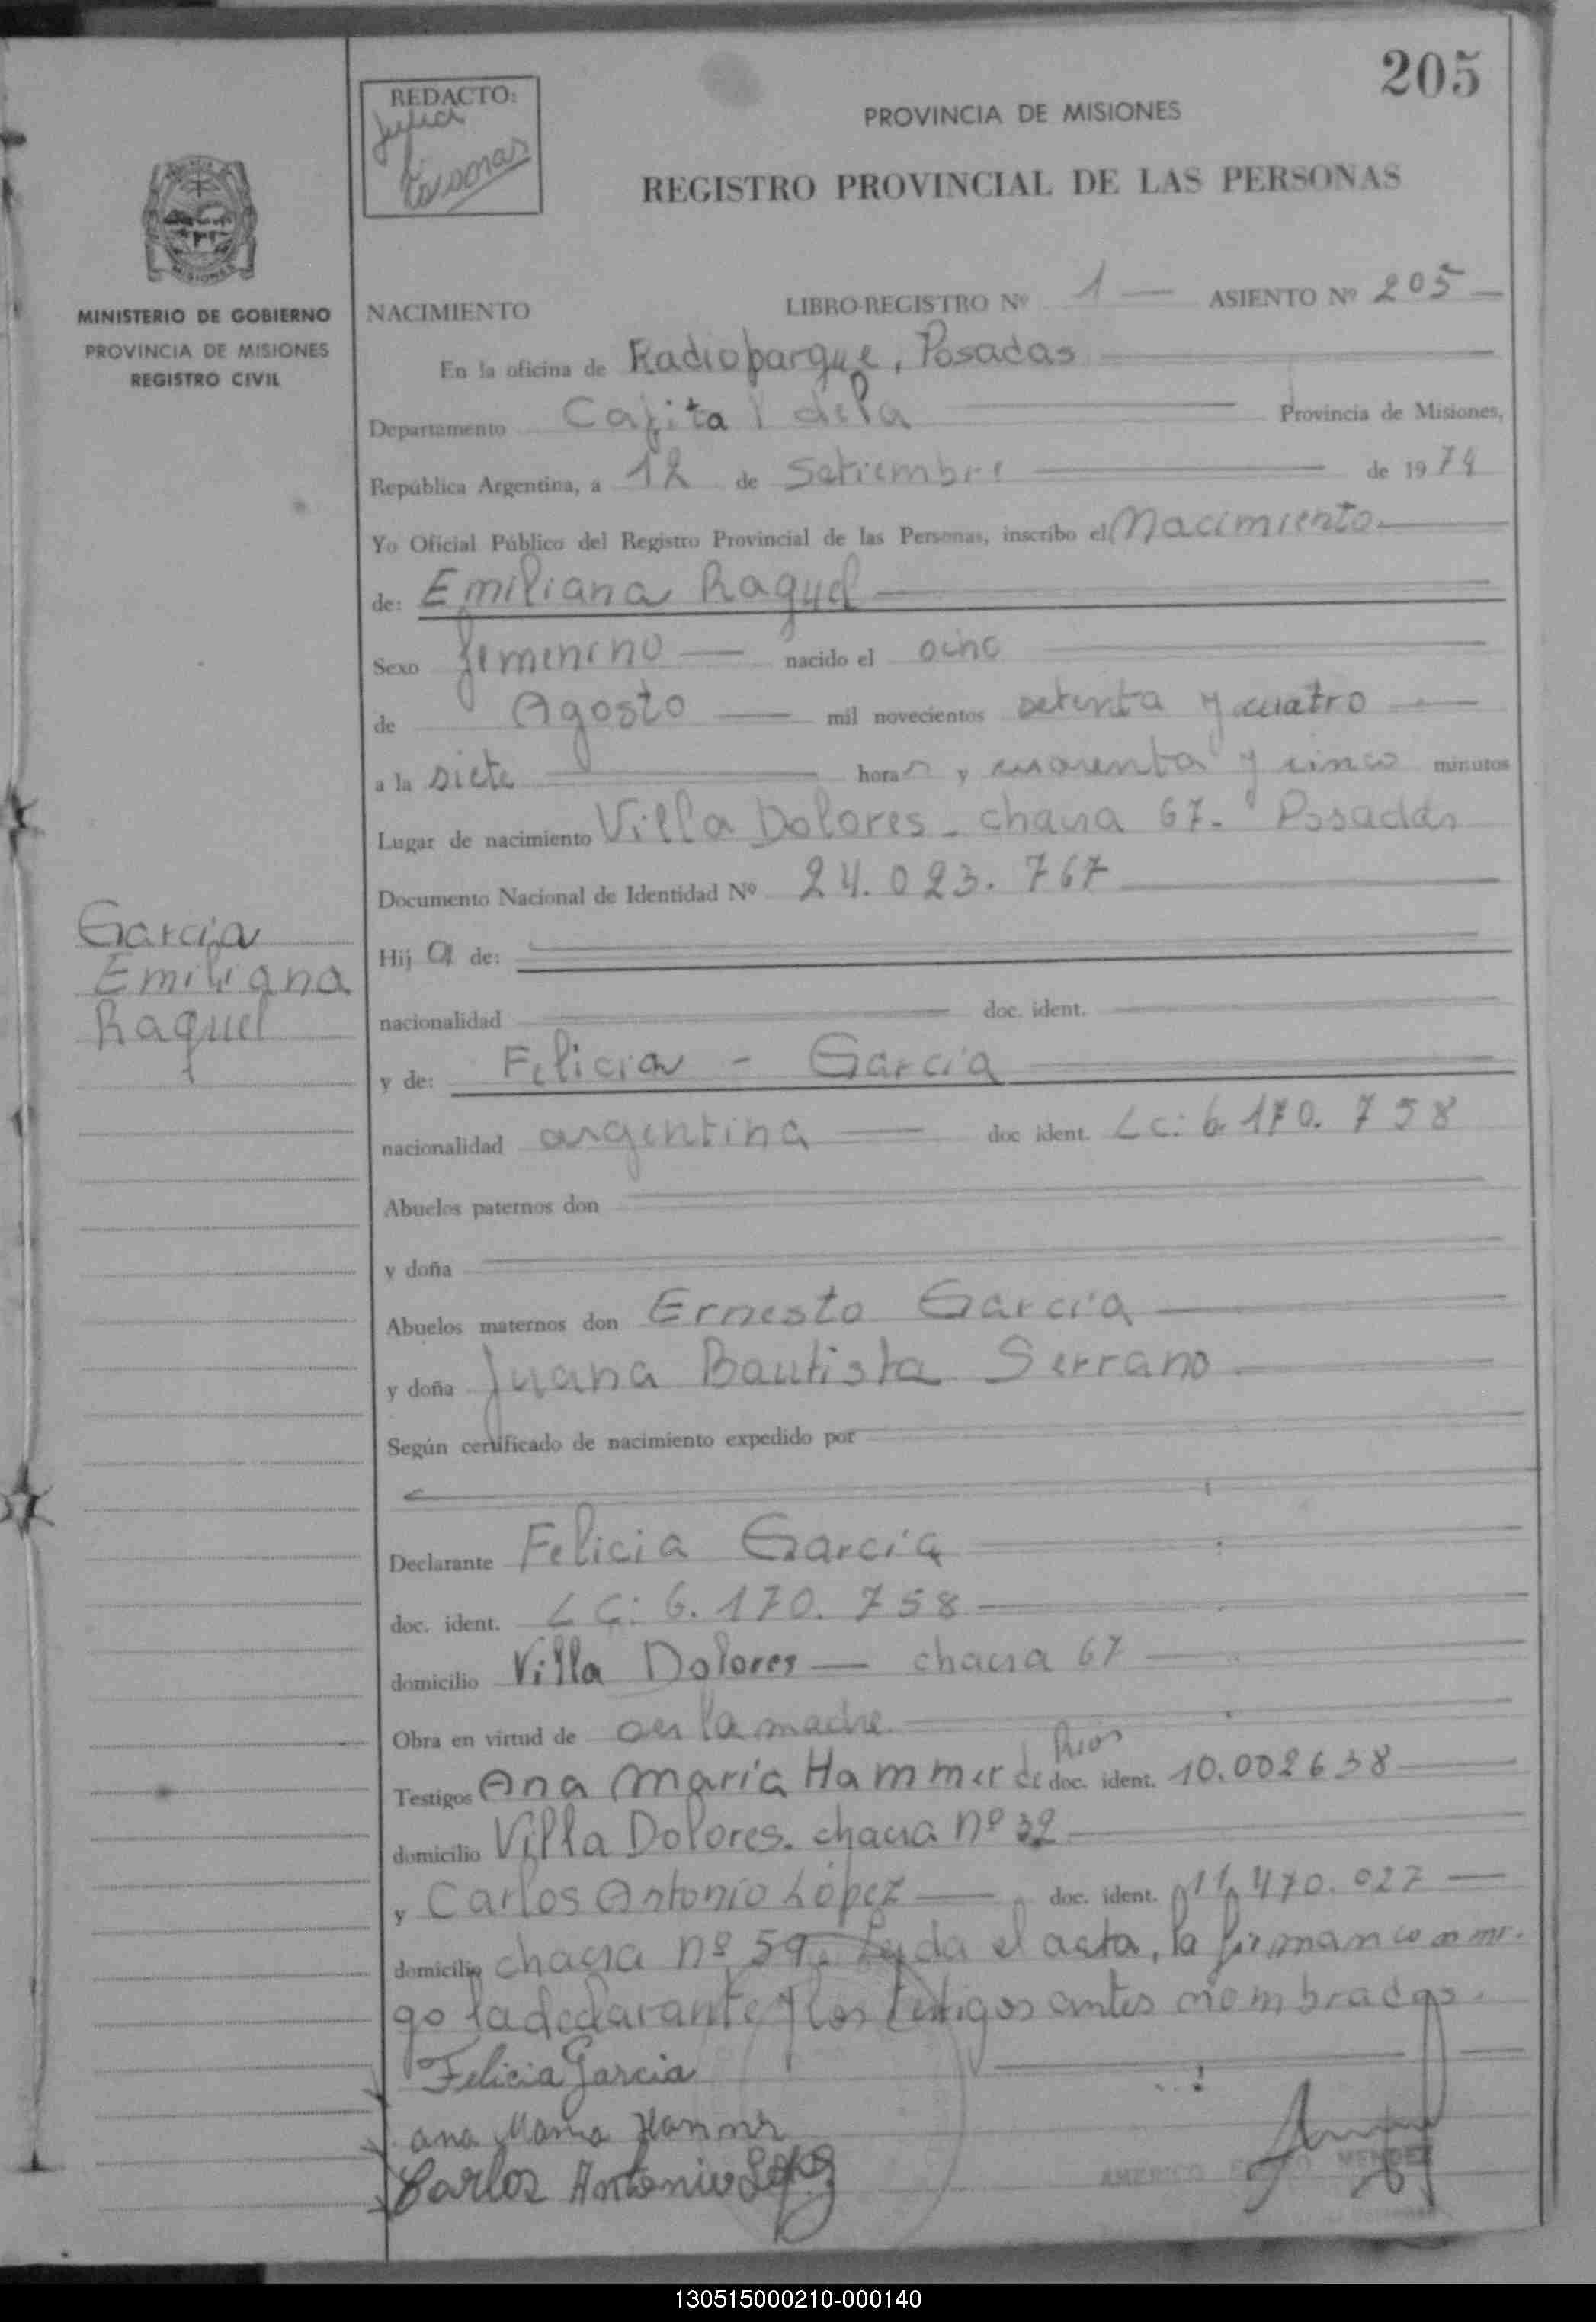 205
REDACTO:
Julia
PROVINCIA DE MISIONES
REGISTRO PROVINCIAL DE LAS PERSONAS
MINISTERIO DE GOBIERNO
PROVINCIA DE MISIONES
REGISTRO CIVIL
NACIMIENTO LIBRO-REGISTRO Nº 1 — ASIENTO Nº 205 —
En la oficina de Radioparque, Posadas
Departamento Capital de la Provincia de Misiones,
República Argentina, a 12 de Setiembre de 1974
Yo Oficial Público del Registro Provincial de las Personas, inscribo el Nacimiento
de: Emiliana Raquel
Sexo femenino — nacido el ocho
de Agosto — mil novecientos setenta y cuatro —
a la siete horas y cuarenta y cinco minutos
Lugar de nacimiento Villa Dolores - chacra 67. Posadas
Documento Nacional de Identidad Nº 24.023.767
Garcia
Emiliana
Raquel
Hija de:
nacionalidad doc. ident.
y de: Felicia - García
nacionalidad argentina — doc ident. LC: 6.170.758
Abuelos paternos don
y doña
Abuelos maternos don Ernesto García
y doña Juana Bautista Serrano
Según certificado de nacimiento expedido por
Declarante Felicia García
doc. ident. LC: 6.170.758
domicilio Villa Dolores — chacra 67
Obra en virtud de ser la madre
Testigos Ana María Hammer de Rios doc. ident. 10.002638
domicilio Villa Dolores. chacra nº 32
y Carlos Antonio López — doc. ident. 11.470.027 —
domicilio chacra nº 59. Leyda el acta, la firman conmi-
go la declarante y los testigos antes nombrados.
Felicia Garcia
Ana Maria Hammer
Carlos Antonio López
AMERICO MENDEZ
130515000210-000140